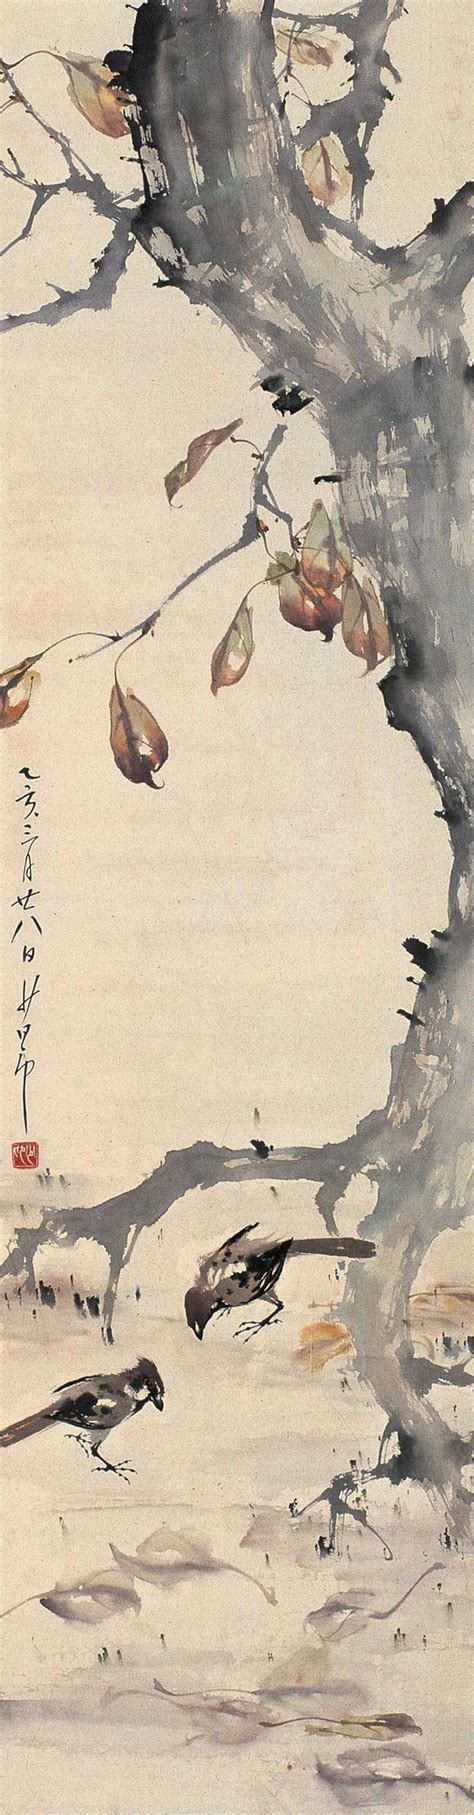 乙亥三月廿八日少昂